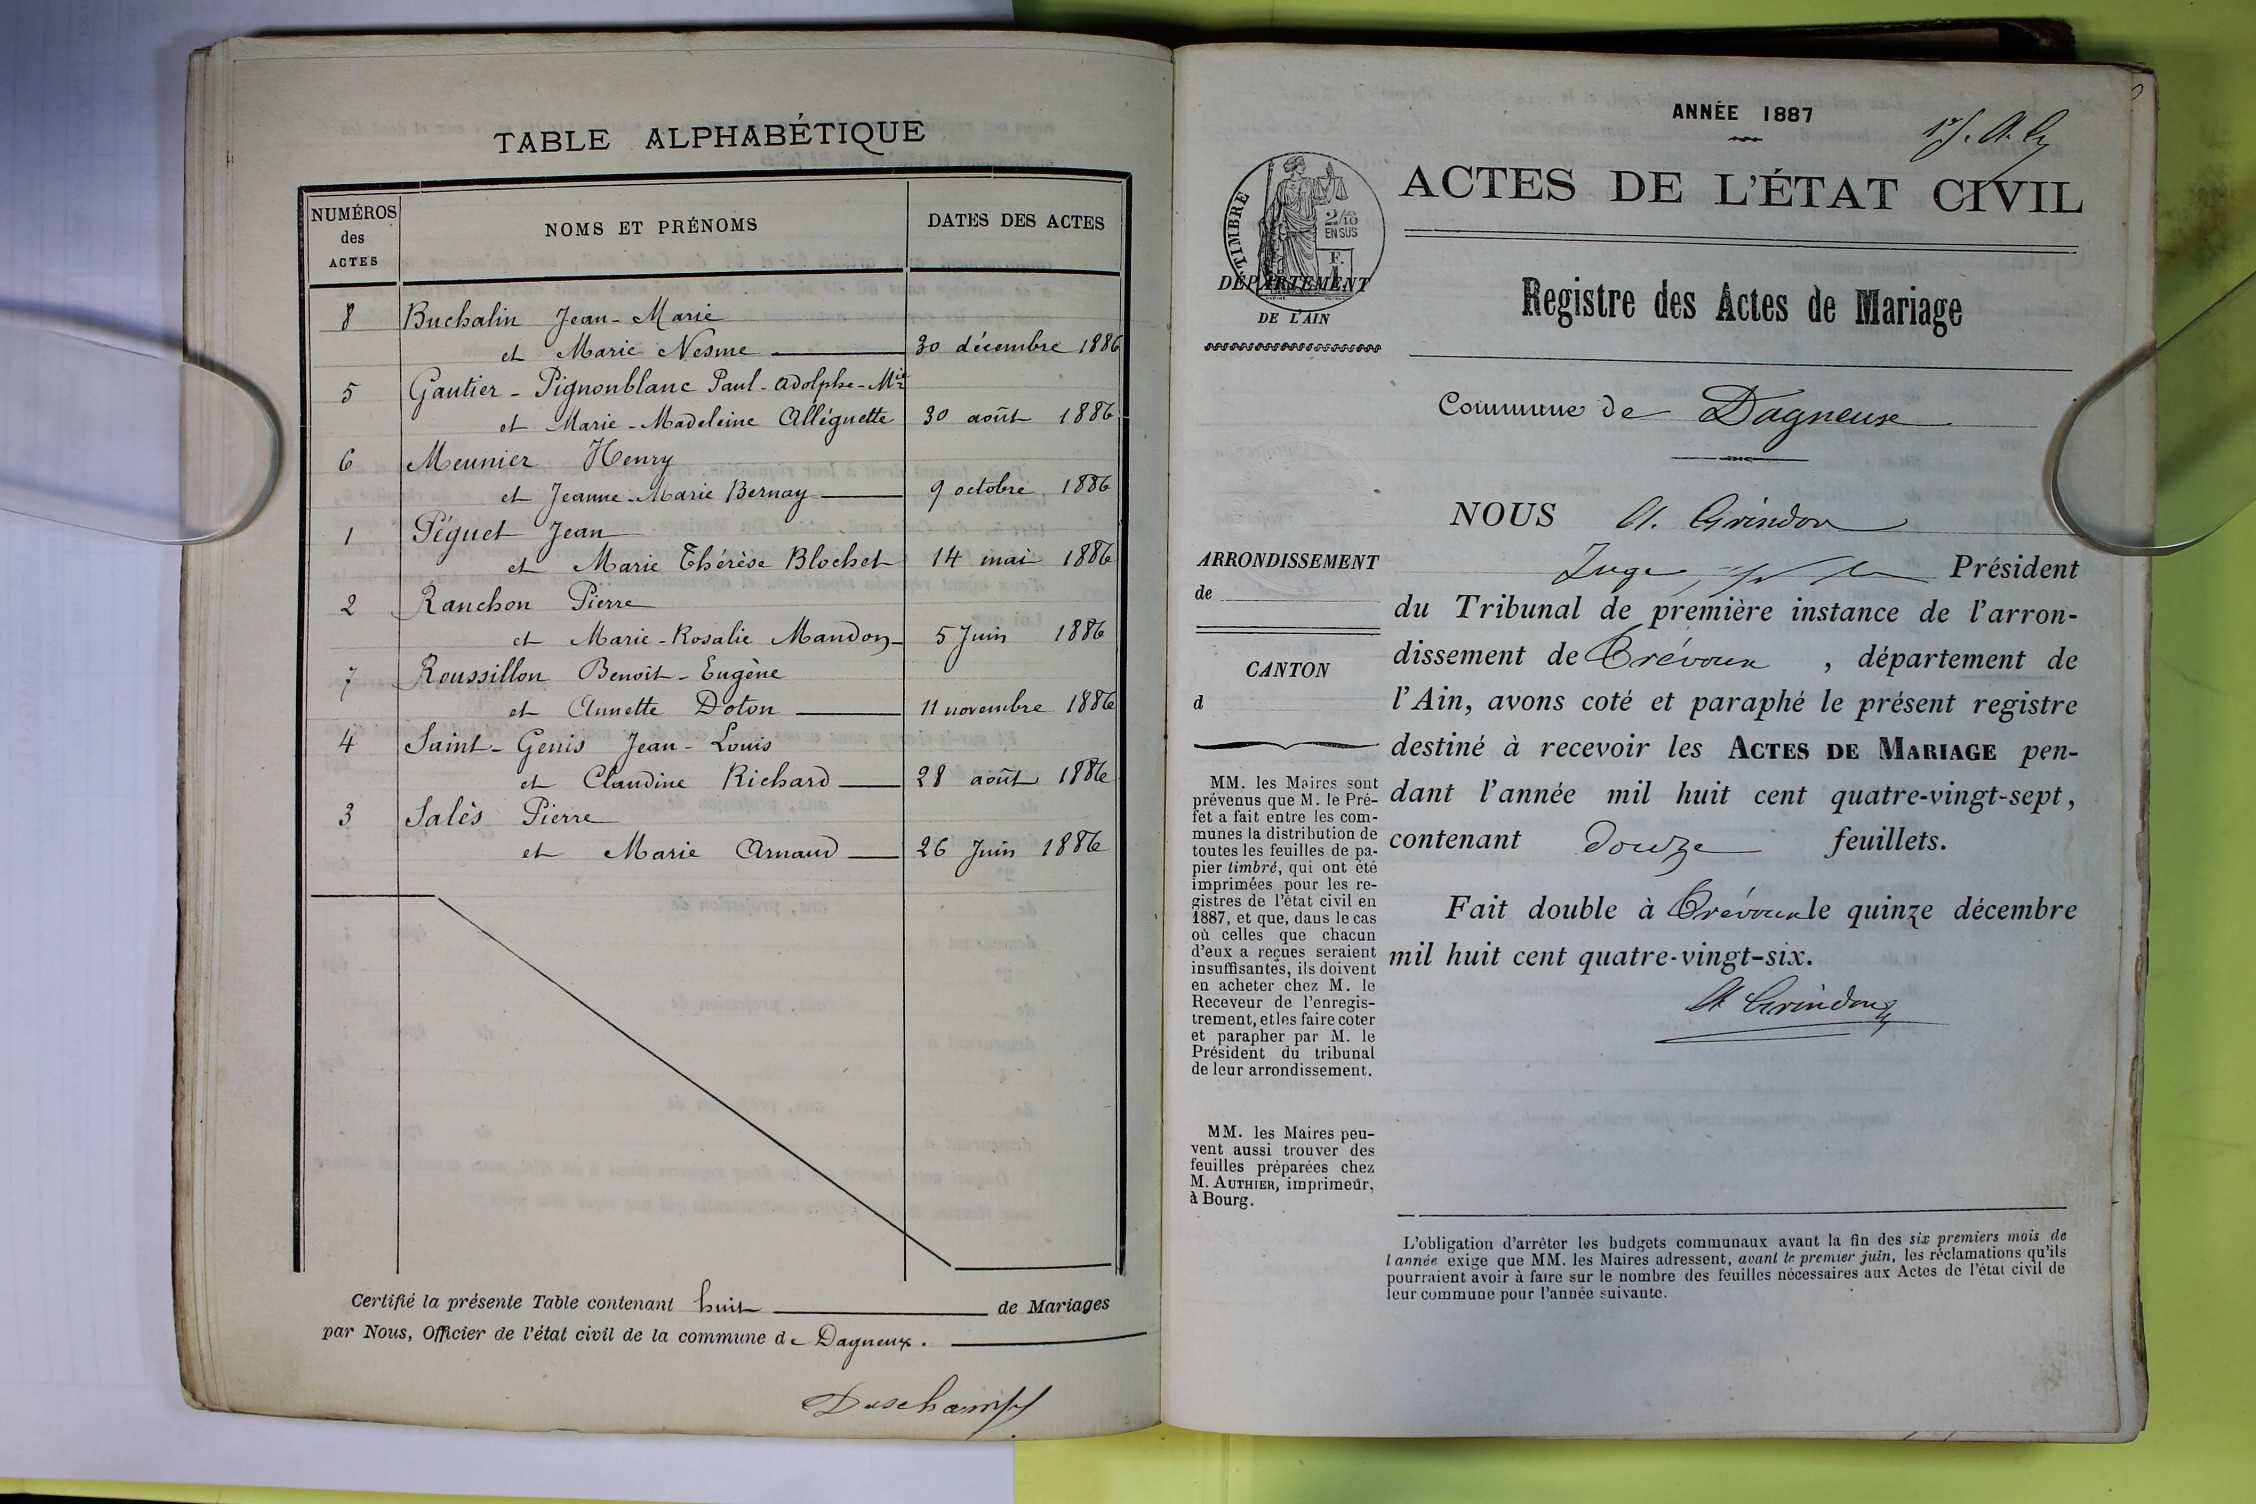 TABLE ALPHABÉTIQUE
NUMÉROS des ACTES
NOMS ET PRÉNOMS
DATES DES ACTES
8 Buchalin Jean-Marie
et Marie Nesme 30 décembre 1886
5 Gautier-Pignonblanc Paul-Adolphe-Mie
et Marie-Madeleine Alléguette 30 août 1886
6 Meunier Henry
et Jeanne-Marie Bernay 9 octobre 1886
1 Péguet Jean
et Marie Thérèse Blochet 14 mai 1886
2 Ranchon Pierre
et Marie-Rosalie Mandon 5 Juin 1886
7 Roussillon Benoît-Eugène
et Annette Doton 11 novembre 1886
4 Saint-Genis Jean-Louis
et Claudine Richard 28 août 1886
3 Salès Pierre
et Marie Arnaud 26 Juin 1886
Certifié la présente Table contenant huit de Mariages
par Nous, Officier de l'état civil de la commune de Dagneux.
Deschamps
ANNÉE 1887
ACTES DE L'ÉTAT CIVIL
TIMBRE
2/10
EN SUS
F.
DÉPARTEMENT
DE L'AIN
Registre des Actes de Mariage
Commune de Dagneux
NOUS A. Grindon
ARRONDISSEMENT
de
CANTON
d
Juge Président
du Tribunal de première instance de l'arron-
dissement de Trévoux, département de
l'Ain, avons coté et paraphé le présent registre
destiné à recevoir les ACTES DE MARIAGE pen-
dant l'année mil huit cent quatre-vingt-sept,
contenant douze feuillets.
Fait double à Trévoux le quinze décembre
mil huit cent quatre-vingt-six.
A Grindon
MM. les Maires sont
prévenus que M. le Pré-
fet a fait entre les com-
munes la distribution de
toutes les feuilles de pa-
pier timbré, qui ont été
imprimées pour les re-
gistres de l'état civil en
1887, et que, dans le cas
où celles que chacun
d'eux a reçues seraient
insuffisantes, ils doivent
en acheter chez M. le
Receveur de l'enregis-
trement, et les faire coter
et parapher par M. le
Président du tribunal
de leur arrondissement.
MM. les Maires peu-
vent aussi trouver des
feuilles préparées chez
M. AUTHIER, imprimeur,
à Bourg.
L'obligation d'arrêter les budgets communaux avant la fin des six premiers mois de
l'année exige que MM. les Maires adressent, avant le premier juin, les réclamations qu'ils
pourraient avoir à faire sur le nombre des feuilles nécessaires aux Actes de l'état civil de
leur commune pour l'année suivante.